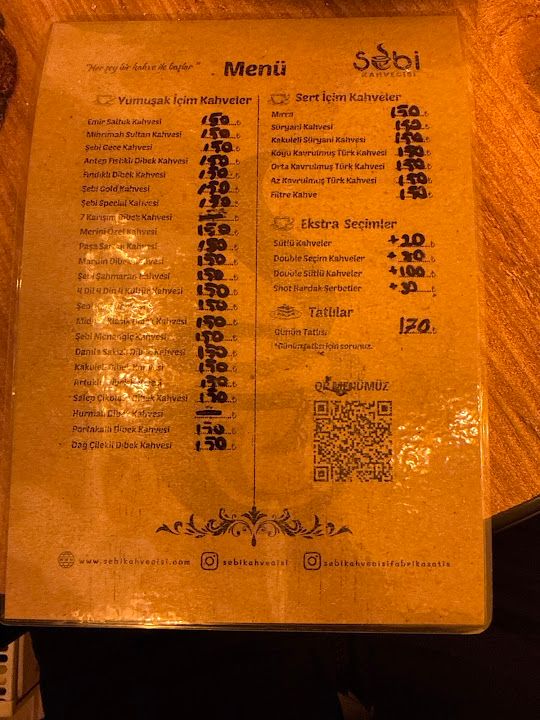 "Her şey bir kahve ile başlar"
Menü
Sebi
KAHVECİSİ
Yumuşak İçim Kahveler
Emir Saltuk Kahvesi 150 ₺
Mihrimah Sultan Kahvesi 150 ₺
Şebi Gece Kahvesi 150 ₺
Antep Fıstıklı Dibek Kahvesi 150 ₺
Fındıklı Dibek Kahvesi 150 ₺
Şebi Gold Kahvesi 150 ₺
Şebi Special Kahvesi 150 ₺
7 Karışım Dibek Kahvesi ₺
Merini Özel Kahvesi 150 ₺
Paşa Sarayı Kahvesi 150 ₺
Mardin Dibek Kahvesi 150 ₺
Şebi Şahmaran Kahvesi 150 ₺
4 Dil 4 Din 4 Kültür Kahvesi 150 ₺
Kahvesi 150 ₺
Dibek Kahvesi 150 ₺
Şebi Menengiç Kahvesi 150 ₺
Damla Sakızlı Dibek Kahvesi 150 ₺
Kakuleli Dibek Kahvesi 150 ₺
Artuklu Dibek Kahvesi 150 ₺
Salep Çikolatalı Dibek Kahvesi 150 ₺
Hurmalı Dibek Kahvesi ₺
Portakallı Dibek Kahvesi 150 ₺
Dağ Çilekli Dibek Kahvesi 150 ₺
Sert İçim Kahveler
Mırra 150 ₺
Süryani Kahvesi 150 ₺
Kakuleli Süryani Kahvesi 150 ₺
Koyu Kavrulmuş Türk Kahvesi 150 ₺
Orta Kavrulmuş Türk Kahvesi 150 ₺
Az Kavrulmuş Türk Kahvesi 150 ₺
Filtre Kahve 150 ₺
Ekstra Seçimler
Sütlü Kahveler +20 ₺
Double Seçim Kahveler +80 ₺
Double Sütlü Kahveler +100 ₺
Shot Bardak Şerbetler +30 ₺
Tatlılar
Günün Tatlısı 170 ₺
*Günün tatlısı için sorunuz.
QR MENÜMÜZ
www.sebikahvecisi.com
sebikahvecisi
sebikahvecisifabrikasatis